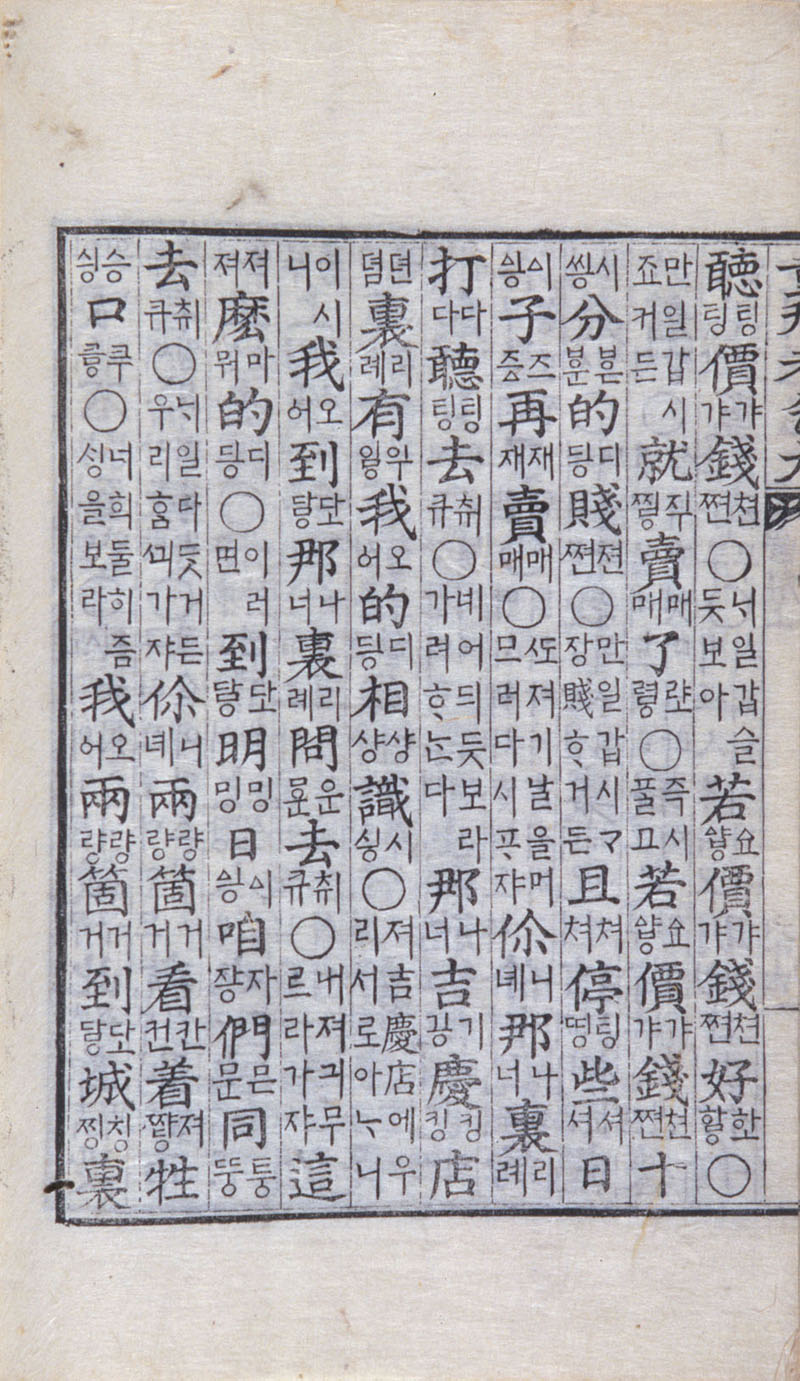 聽팅팅價갸갸錢쪈쳔○ᄂᆡ일갑슬듯보아若價갸갸錢쪈쳔好○
만일갑시죠커든就賣매매了○즉시ᄑᆞᆯ고若價갸갸錢쪈쳔十
씽시分的딍디賤쪈젼○만일갑시ᄀ장賤ᄒᆞ거든且쳐쳐停띵팅些셔셔日
ᅀᅵᆼᅀᅵ子즁즈再재재賣매매○ᄯᅩ져기날을머므러다시ᄑᆞ쟈你녜니那너나裏례리
打다다聽팅팅去큐취○네어듸듯보라가려ᄒᆞᄂᆞᆫ다那너나吉깅기慶킹킹店
뎜뎐裏례리有我어오的딍디相샹샹識싱시○져吉慶店에우리서로아ᄂᆞ니
이시니我어오到那너나裏례리問去큐취○내져긔무르라가쟈這
져져麼뭐마的딍디○이러면到明밍밍日ᅀᅵᆼᅀᅵ咱쟝자們문믄同뚱퉁
去큐취○ᄂᆡ일다ᄃᆞᆺ거든우리홈ᄭᅴ가쟈你녜니兩량량箇거거看컨칸着牲
싱승口○너희둘히즘싱을보라我어오兩량량箇거거到城찡칭裏